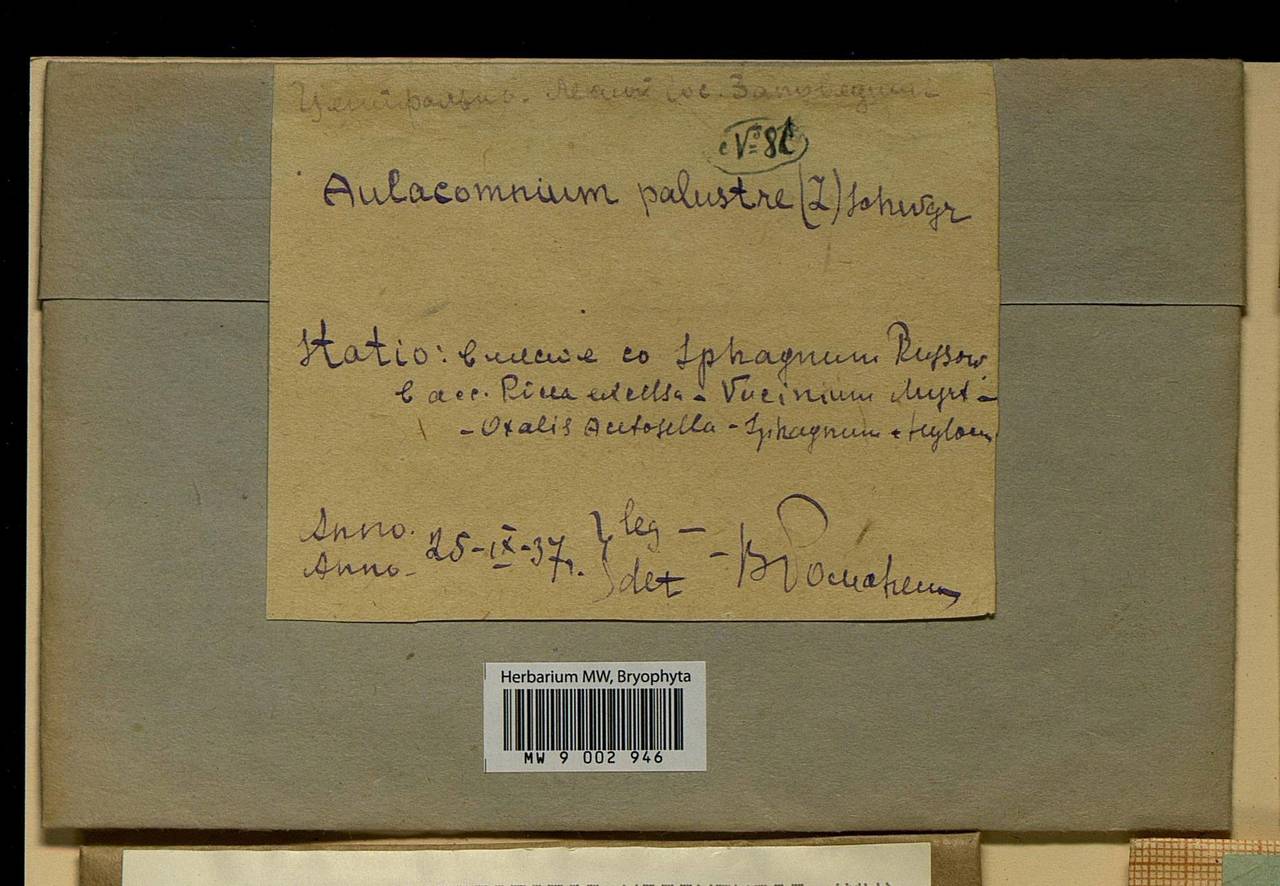 Центральн. Лесной Гос. Заповедник
Aulacomnium palustre (L) Schwgr
Statio: вместе со Sphagnum Russow.
в асс. Picea excelsa - Vaccinium Myrt -
- Oxalis Acetosella - Sphagnum + Hyloc
Anno. 25-IX-37г. leg -
Anno. det -
Herbarium MW, Bryophyta
MW 9 002 946